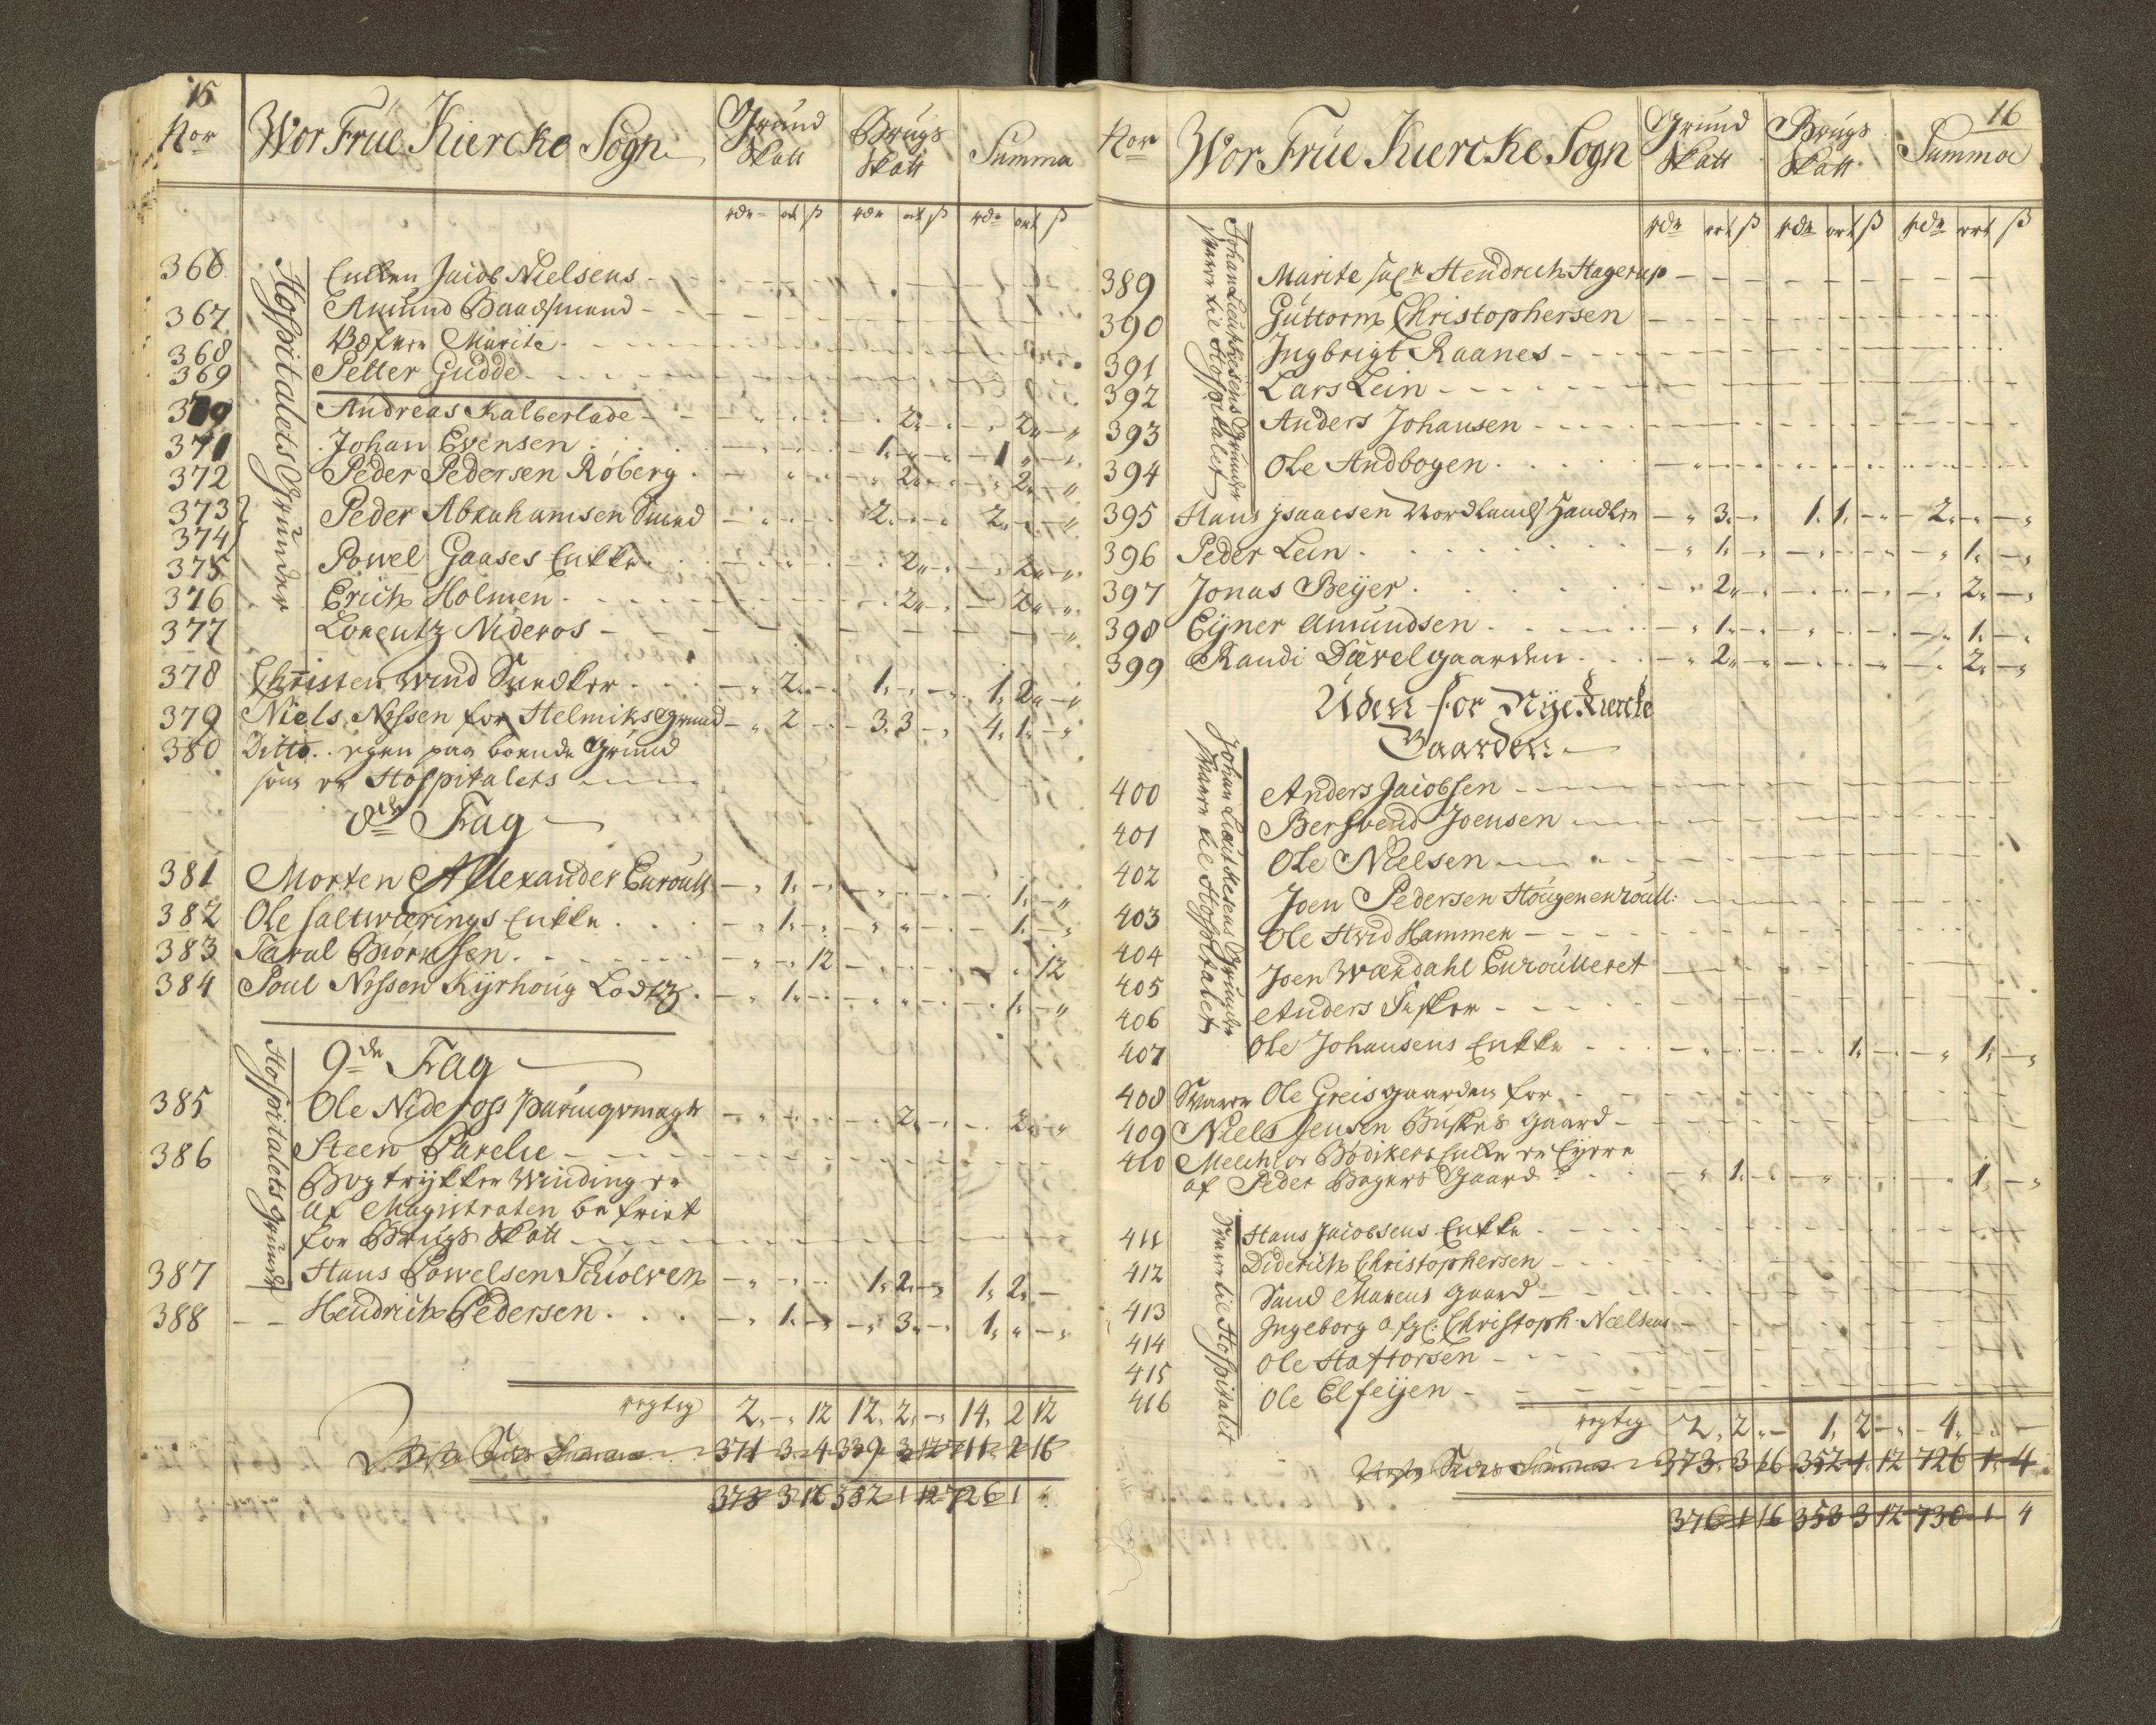 15
Nor Wor Frúe Kiercke Sogn Grúnd Skatt Brúgs Skatt Summa
rdr ort ß rdr ort ß rdr ort ß
Hospitalets Grúnder
366 Enken Jacob Nielsens
367 Amúnd Baadsmand
368 Marite
369 Petter Gúdde
379 Andreas Kalberlade 2 2
371 Johan Evensen 1 1
372 Peder Pedersen Róberg 2 2
373 Peder Abrahamsen Smed 2 2
374
375 Powel Gaases Enkke 2 2
376 Erich Holmen 2 2
377 Lorentz Nideros
378 Christen Wind Snedker 2 1 1 2
379 Niels Nissen for Helmiks Grund 2 3 3 4 1
380 Ditto egen paa boende Grúnd
som er Hospitalets
8de Frag
381 Morten Allexander Enroull 1 1
382 Ole Saltwærings Enkke 1 1
383 Taral Biórnssen 12 12
384 Poul Nissen Kyrhoúg Lodtz 1 1
9de Frag
Hospitalets Grúnde
385 Ole Nideros 2 2
386 Steen Parelie
Bogtrÿkker Winding er
af Magistraten befriet
for Brúgs Skatt
387 Hans Powelsen Schiolven 1 2 1 2
388 Hendrich Pedersen 1 3 1
rigtig 2 12 12 2 14 2 12
Sides Summa 371 3 4 339 3 12 711 2 16
373 3 16 352 1 12 726 1
16
Nor Wor Frúe Kiercke Sogn Grúnd Skatt Brúgs Skatt Summa
rdr ort ß rdr ort ß rdr ort ß
Johan Leuchesens Grúnder
svarer til Hospitalet
389 Marite Sal. Hendrich Hagerup
390 Gúttorm Christophersen
391 Ingbrigt Raanes
392 Lars Lein
393 Anders Johansen
394 Ole Andbogen
395 Hans Isaacsen Nordlands Handler 3 1 1 2
396 Peder Lein 1 1
397 Jonas Beÿer 2 2
398 Eÿner Amúndsen 1 1
399 Randi Dævelgaarden 2 2
Úden for Nye Kiercke
Gaarden
Johan Grúnder
svarer til Hospitalet
400 Anders Jacobsen
401 Bersvend Joensen
402 Ole Nielsen
403 Joen Pedersen Hoúgen enroúll:
404 Ole Hvid Hammer
405 Joen Wærdahl Enroúlleret
406 Anders Fisker
407 Ole Johansens Enkke 1 1
408 Svarer Ole Greisgaarden for
409 Niels Jensen Búskes Gaard
410 Melchior Bódikers Enke er Eÿere
af Peder Bagers Gaard 1 1
svarer til Hospitalet
411 Hans Jacobsens Enkke
412 Diderich Christophersen
413 Sand Marcus Gaard
414 Ingeborg Christoph. Nielsens
415 Ole Haftorsen
416 Ole Elseÿen
rigtig 2 2 1 2 4
Sides Summa 373 3 16 352 1 12 726 1 4
376 1 16 353 3 12 730 1 4